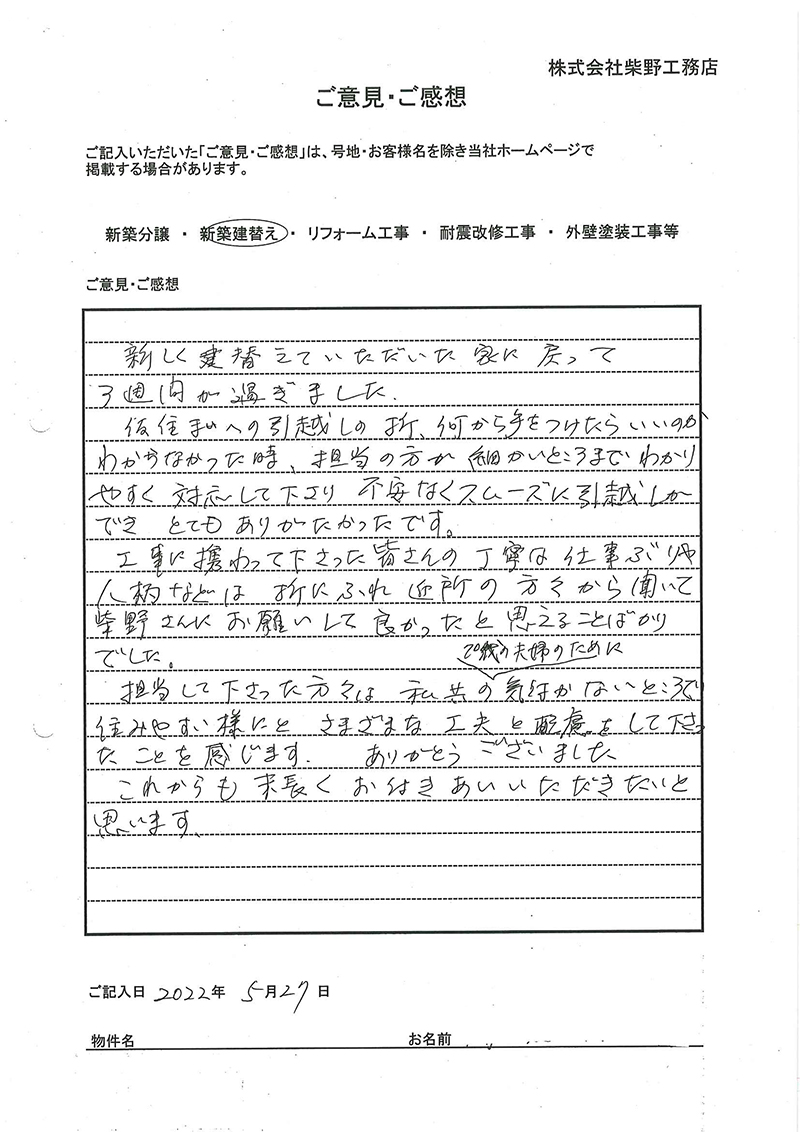 株式会社柴野工務店
ご意見・ご感想
ご記入いただいた「ご意見・ご感想」は、号地・お客様名を除き当社ホームページで
掲載する場合があります。
新築分譲 ・ 新築建替え ・ リフォーム工事 ・ 耐震改修工事 ・ 外壁塗装工事等
ご意見・ご感想
新しく建替えていただいた家に戻って
3週間が過ぎました.
仮住まいへの引越しの折、何から手をつけたらいいのか、
わからなかった時、担当の方が細かいところまでわかり
やすく対応して下さり 不安なくスムーズに引越しが
でき とてもありがたかったです。
工事に携わって下さった皆さんの丁寧な仕事ぶりや
人柄などは 折にふれ近所の方々から聞いて
柴野さんにお願いして良かったと思えることばかり
でした。
70歳の夫婦のために
担当して下さった方々は 私共の気付かないところで
住みやすい様にと さまざまな工夫と配慮をして下さっ
たことを感じます. ありがとうございました
これからも末長くお付きあいいただきたいと
思います.
ご記入日 2022年 5月27日
物件名 お名前